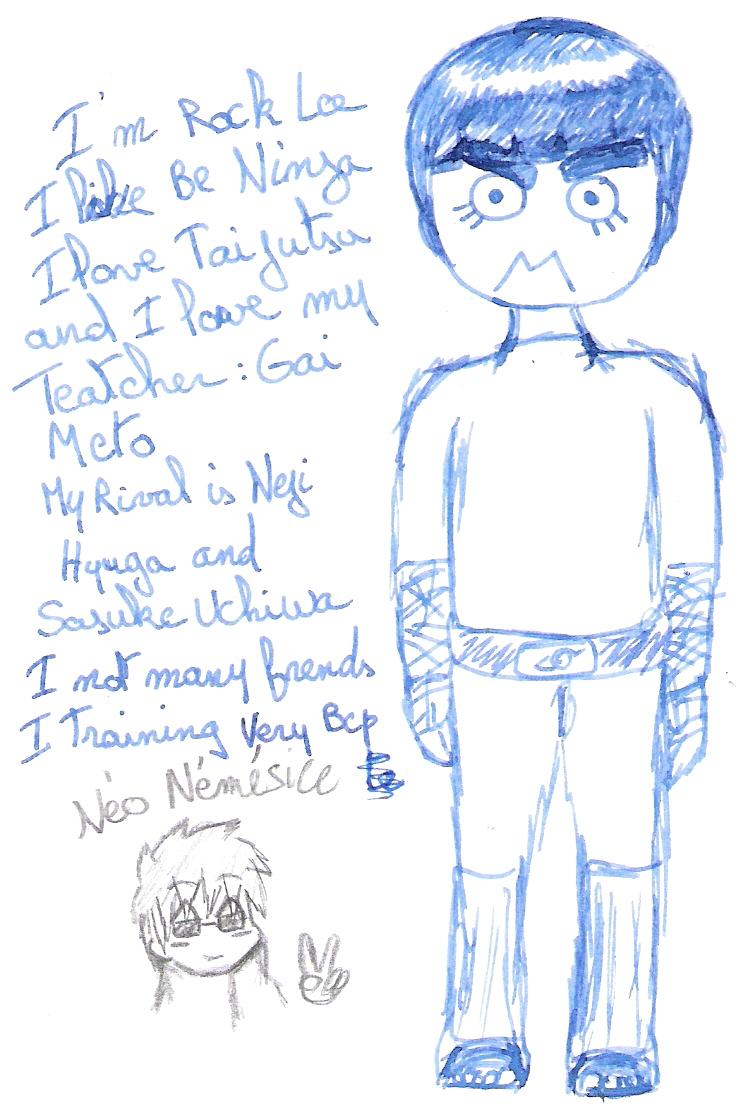 I'm Rock Lee
I like Be Ninja
I love Taijutsu
and I love my
Teatcher : Gai
Meto
My Rival is Neji
Hyuga and
Sasuke Uchiwa
I not many frends
I Training Very Bcp
Néo Némésice